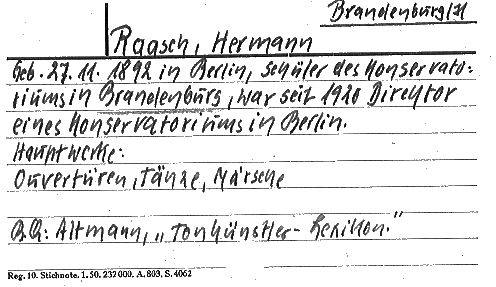 Brandenburg/H
Raasch, Hermann
Geb. 27. 11. 1892 in Berlin, Schüler des Konservato-
riums in Brandenburg, war seit 1920 Direktor
eines Konservatoriums in Berlin.
Hauptwerke:
Ouvertüren, Tänze, Märsche
B.Q: Altmann, „Tonkünstler-Lexikon."
Reg. 10. Stichnote. 1. 50. 232000. A. 803, S. 4062